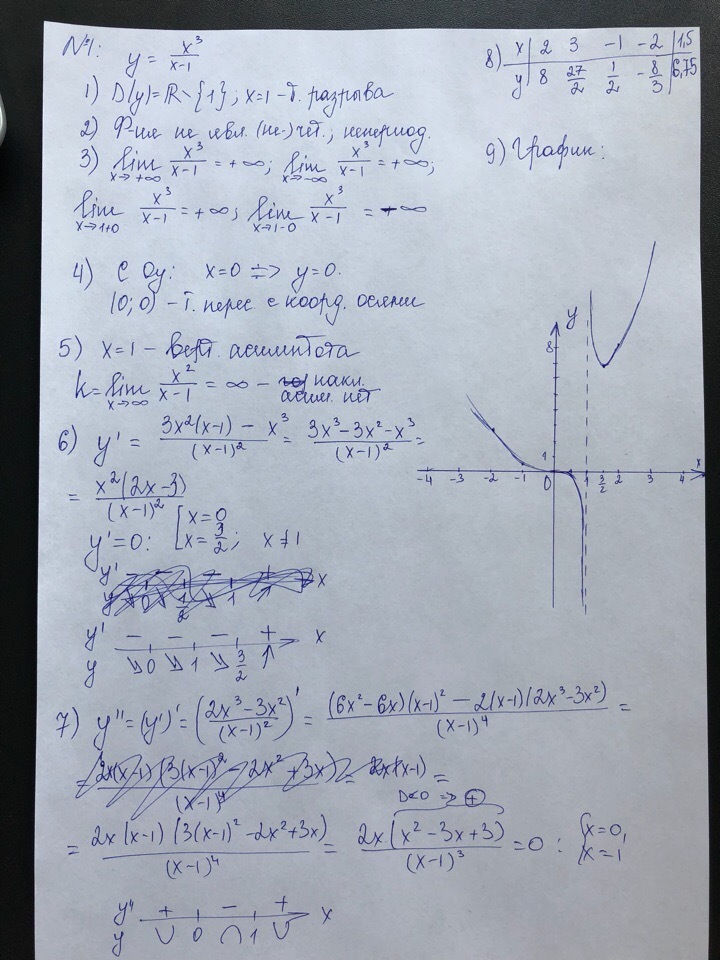 №1: y = x³/(x-1)
1) D(y)=R∖{1}; x=1 – т. разрыва
2) Ф-ия не явл. (не-)чет., непериод.
3) lim x→+∞ x³/(x-1) = +∞; lim x→-∞ x³/(x-1) = +∞;
lim x→1+0 x³/(x-1) = +∞; lim x→1-0 x³/(x-1) = -∞
4) С Oy: x=0 ⇒ y=0.
(0; 0) – т. перес. с коорд. осями
5) x=1 – верт. асимптота
k = lim x→∞ x²/(x-1) = ∞ – накл.
асим. нет
6) y' = (3x²(x-1) - x³)/(x-1)² = (3x³-3x²-x³)/(x-1)² =
= x²(2x-3)/(x-1)²
y'=0: [x=0
x=3/2; x≠1
y' – – – + x
y ↘ 0 ↘ 1 ↘ 3/2 ↑
7) y''=(y')'=((2x³-3x²)/(x-1)²)' = ((6x²-6x)(x-1)² - 2(x-1)(2x³-3x²))/(x-1)⁴ =
D<0 ⇒ ⊕
= 2x(x-1)(3(x-1)²-2x²+3x)/(x-1)⁴ = 2x(x²-3x+3)/(x-1)³ = 0 : {x=0,
x=1
y'' + – + x
y ∪ 0 ∩ 1 ∪
8) x 2 3 -1 -2 1,5
y 8 27/2 1/2 -8/3 6,75
9) График:
y
8
1
-4 -3 -2 -1 0 1 3/2 2 3 4 x